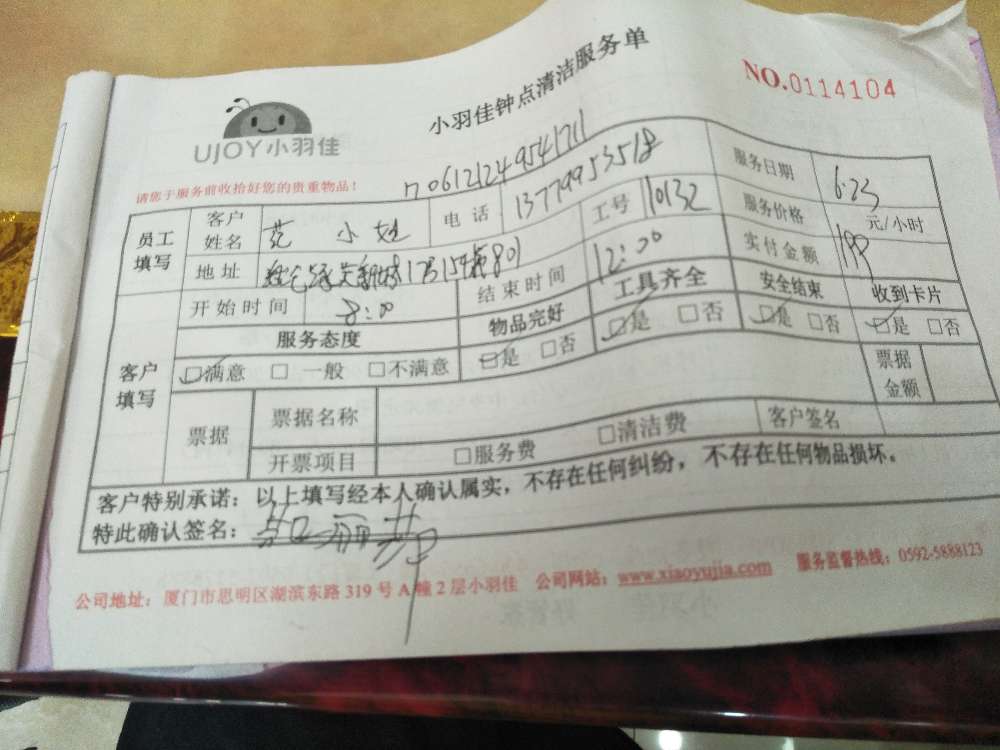 小羽佳钟点清洁服务单
NO.0114104
UJOY小羽佳
请您于服务前收拾好您的贵重物品！
员工填写
客户姓名 范小姐 电话 13779953518 服务日期 6.23
地址 17号154栋801 工号 10132 服务价格 元/小时
开始时间 8:00 结束时间 12:00 实付金额 199
客户填写
服务态度 物品完好 工具齐全 安全结束 收到卡片
☑满意 □一般 □不满意 ☑是 □否 ☑是 □否 ☑是 □否 ☑是 □否
票据 票据名称 票据金额
开票项目 □服务费 □清洁费 客户签名
客户特别承诺：以上填写经本人确认属实，不存在任何纠纷，不存在任何物品损坏。
特此确认签名：
公司地址：厦门市思明区湖滨东路319号A幢2层小羽佳 公司网站：www.xiaoyujia.com 服务监督热线：0592-5888123